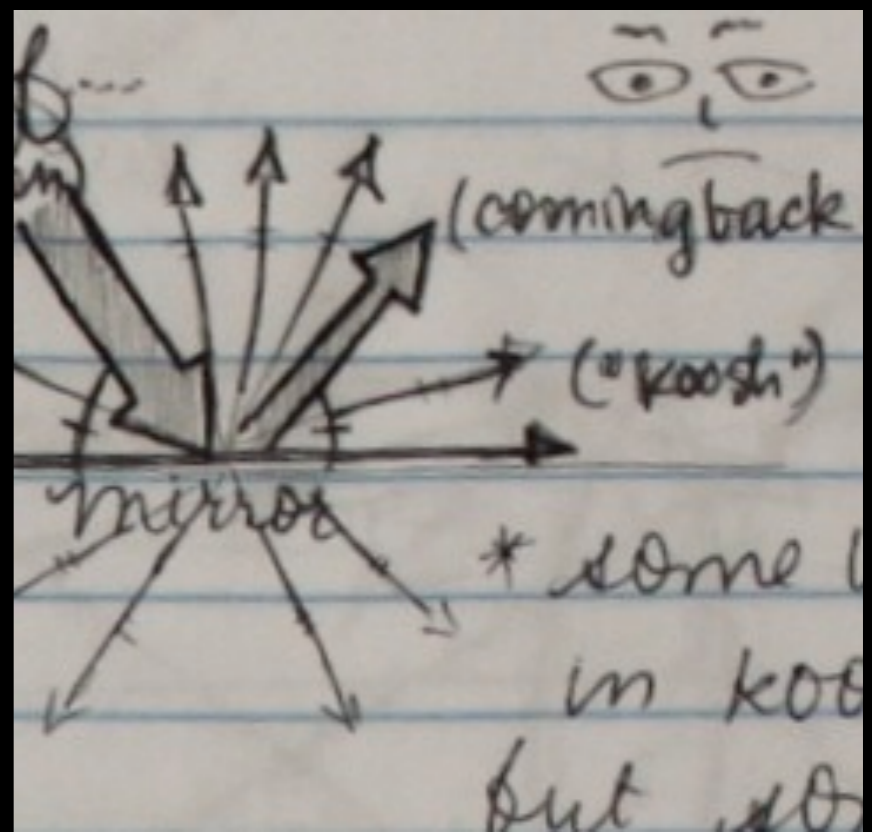 (coming back
("koosh")
mirror
* some
in koo
but so